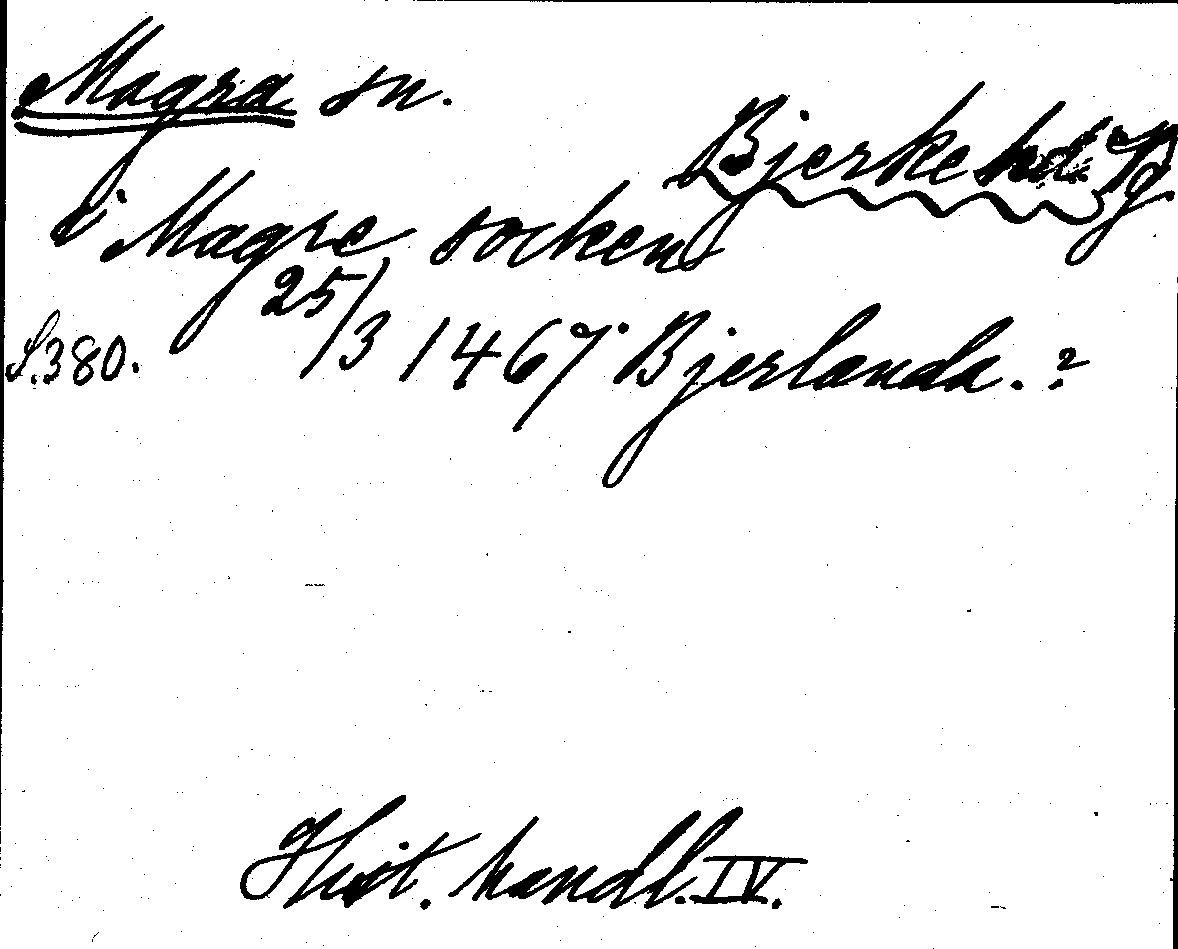 Magra sn.
Bjerke hd. Vg
i Magre socken
S. 380. 25/3 1467 Bjerlanda. ?
Hist. handl. IV.